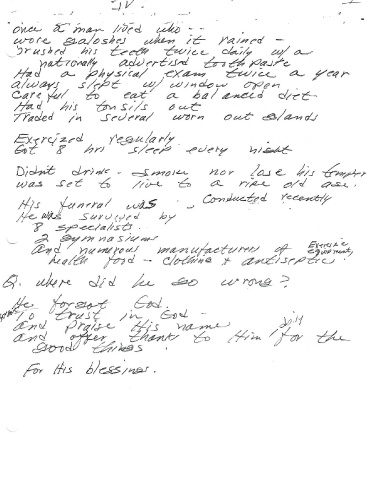 once a man lived who -
wore galoshes when it rained -
brushed his teeth twice daily w/ a
nationally advertised toothpaste
Had a physical exam twice a year
always slept w/ window open
Careful to eat a balanced diet
Had his tonsils out
Traded in several worn out glands
Exercized regularly
Got 8 hrs sleep every night
Didn't drink - smoke nor lose his temper
was set to live to a ripe old age.
His funeral was conducted recently
He was survived by
8 specialists
2 gymnasiums
and numerous manufacturers of Exercise equipment,
health food - clothing & antiseptic
Q. where did he go wrong?
He forgot God.
To trust in God -
and praise His name
and offer thanks to Him for the
good things
For His blessings.